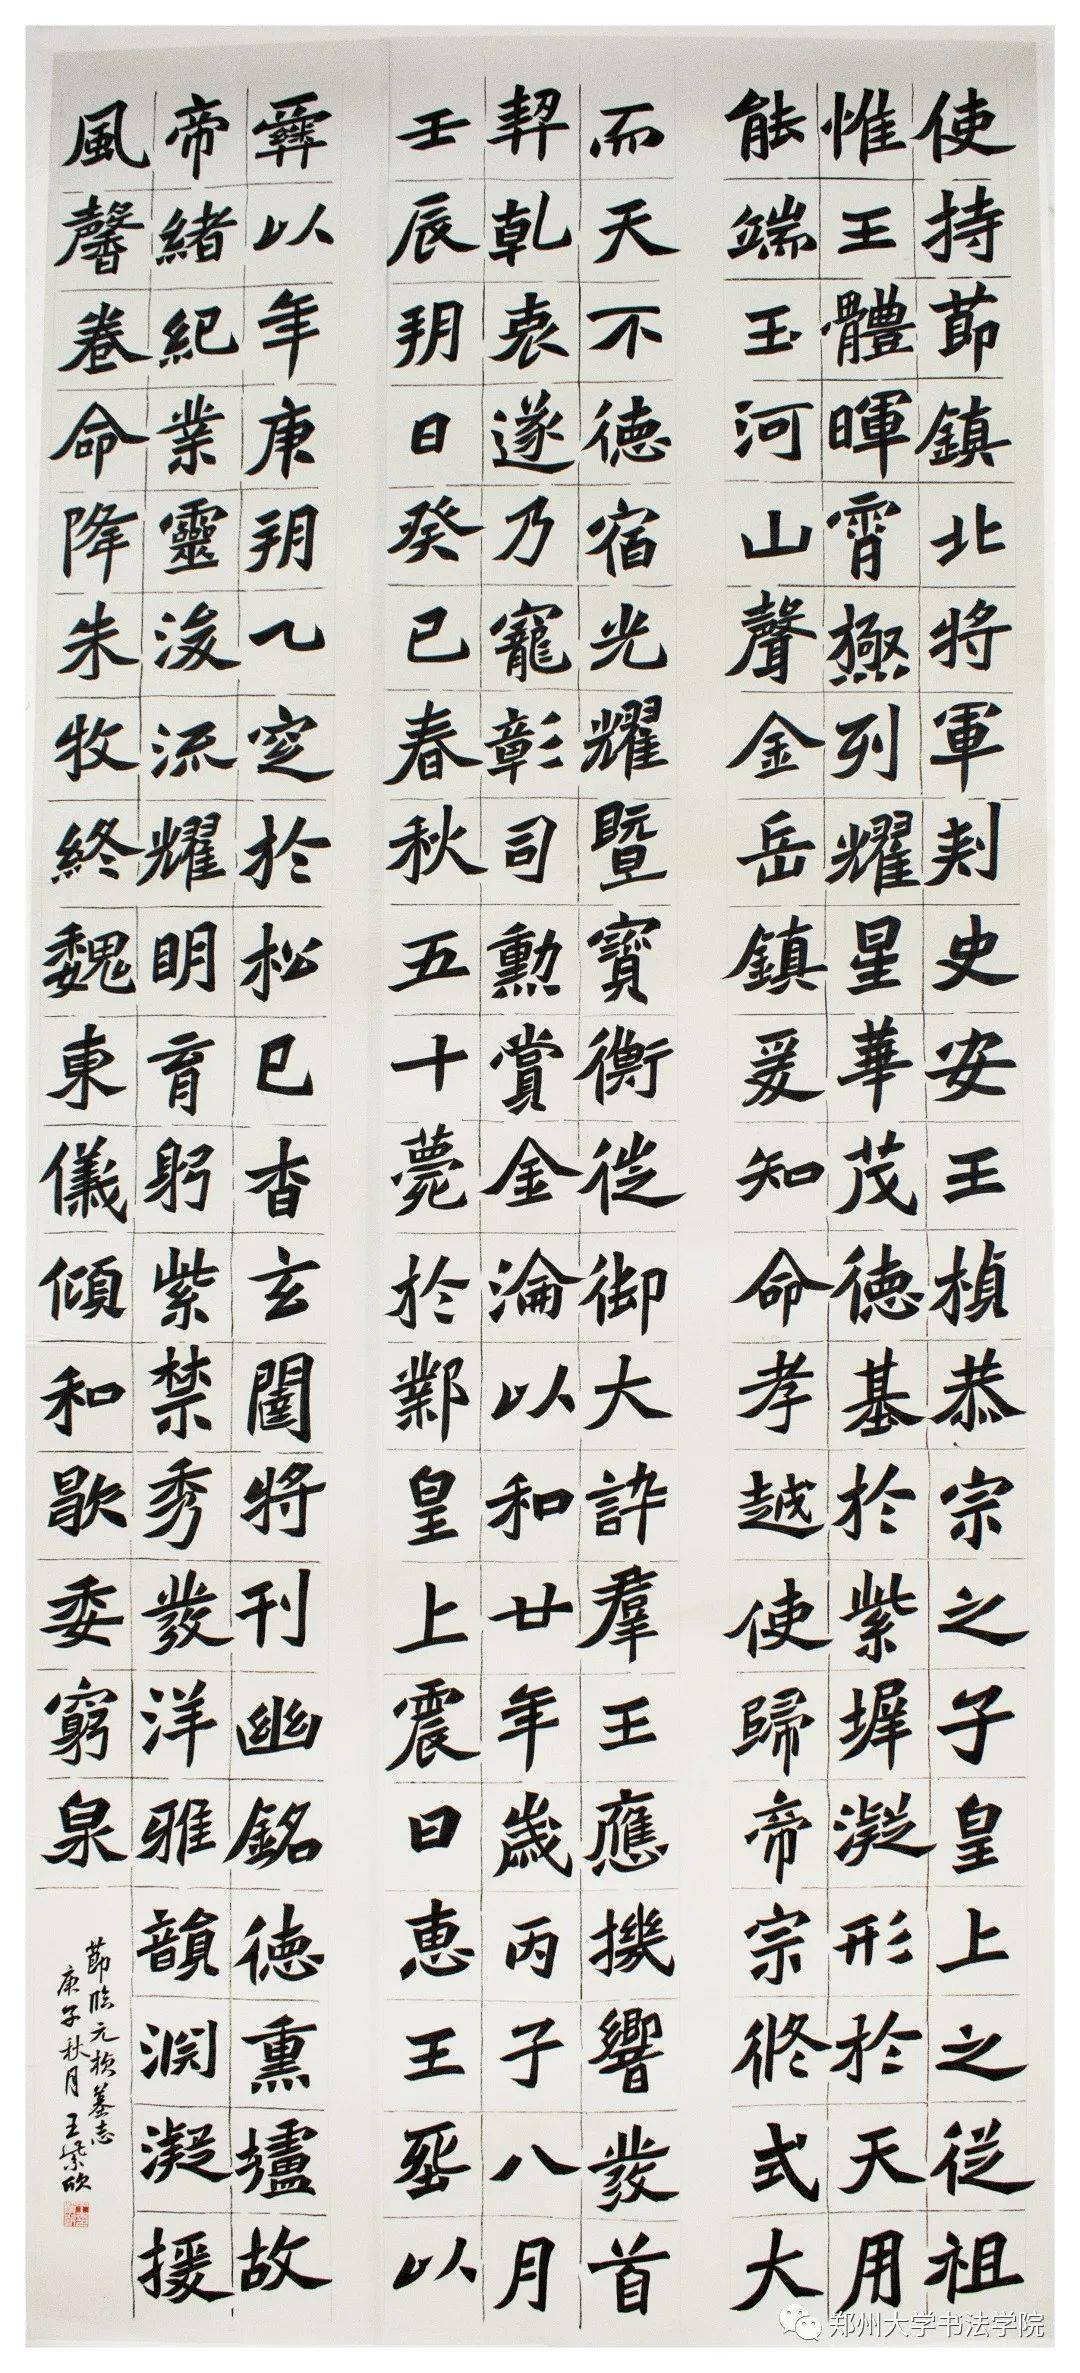 使持節鎮北将軍刾史安王楨恭宗之子皇上之從祖
惟王體暉霄極列耀星華茂德基於紫墀凝形於天用
能端玉河山聲金岳鎮爰知命孝越使歸帝宗俢式大
而天不德宿光耀暨寳衡從御大訢羣王應機響發首
契乾衷遂乃寵彰司勳賞金瀹以和廿年歲丙子八月
壬辰玥日癸巳春秋五十薨於鄴皇上震日惠王埊以
彞以年庚玥乁窆於松巳杳玄闈將刊幽銘德熏壚故
帝緒紀業靈浚流耀明育躬紫禁秀發洋雅韻淵凝援
風馨卷命降朱牧終魏東儀傾和歇委窮泉
節臨元楨墓志
庚子秋月王紫欣
郑州大学书法学院